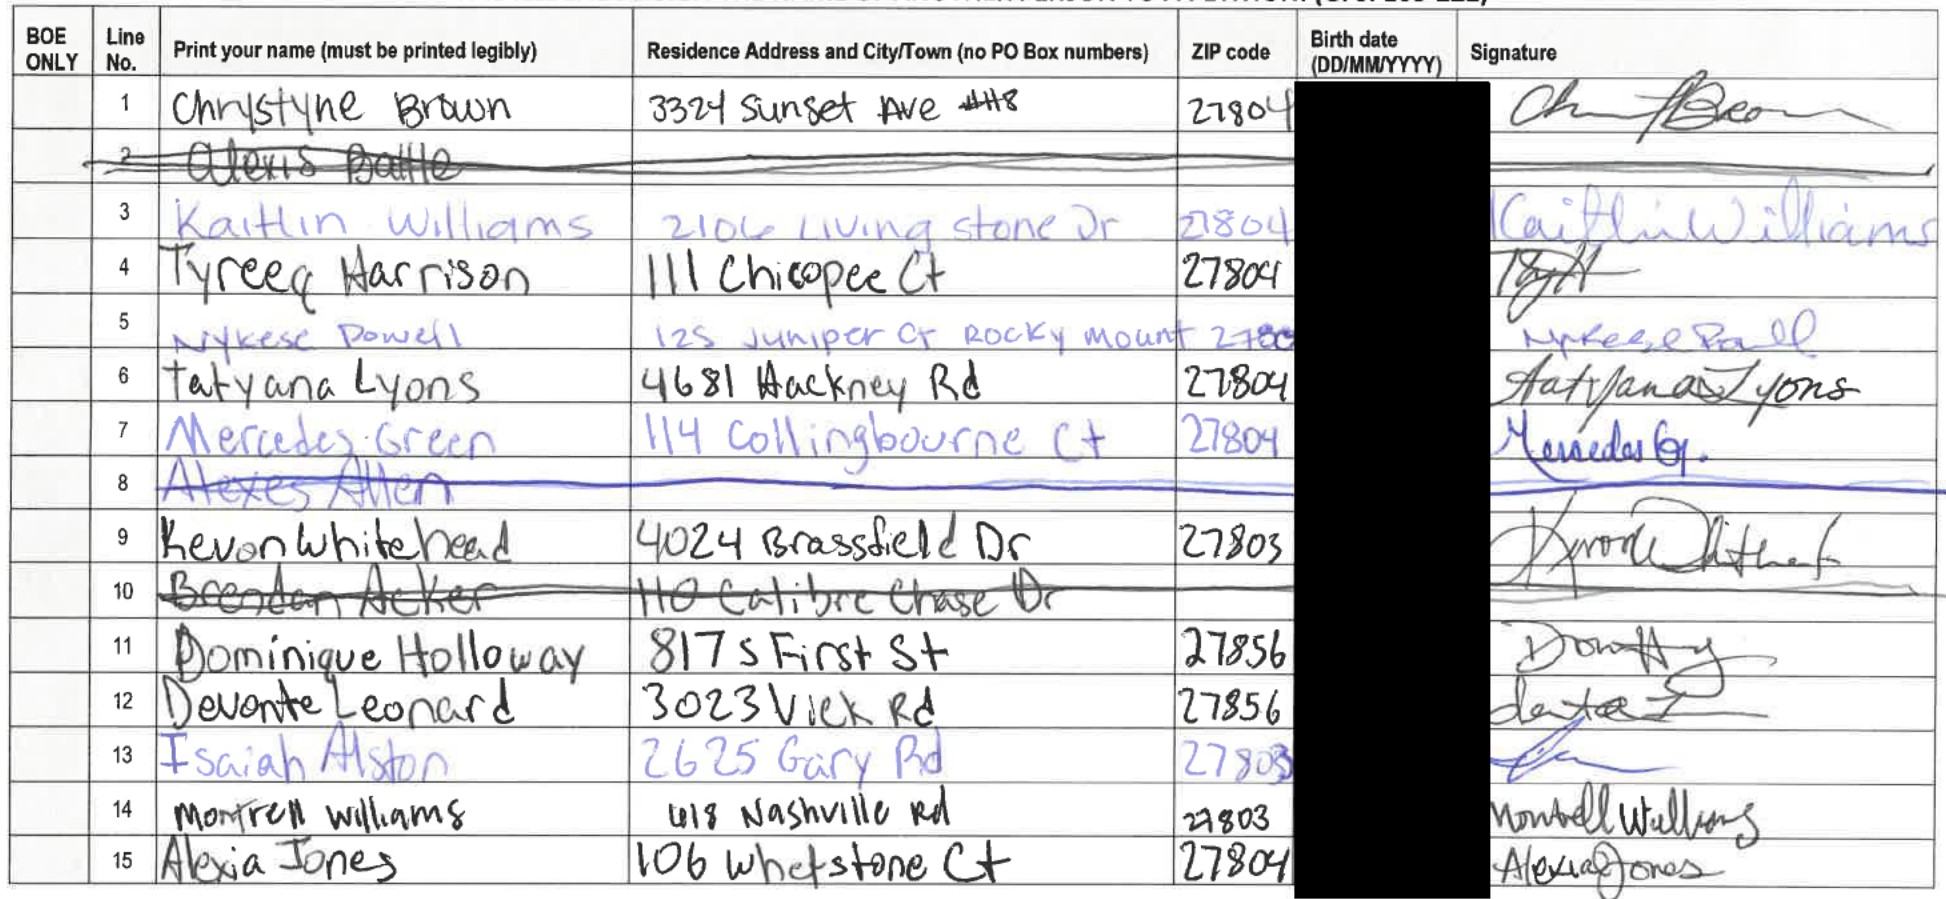 BOE ONLY Line No. Print your name (must be printed legibly) Residence Address and City/Town (no PO Box numbers) ZIP code Birth date (DD/MM/YYYY) Signature
1 Chrystyne Brown 3324 Sunset Ave #H8 27804
2 Alexis Battle
3 Kaitlin Williams 2106 Living stone Dr 27804 Kaitlin Williams
4 Tyreeq Harrison 111 Chicopee Ct 27804
5 Nykese Powell 125 Juniper Ct Rocky mount Nykese Powell
6 Tatyana Lyons 4681 Hackney Rd 27804 Tatyana Lyons
7 Mercedes Green 114 Collingbourne Ct 27804 Mercedes G.
8 Alexes Allen
9 Kevon Whitehead 4024 Brassfield Dr 27803
10 Brendan Acker 110 Calibre Chase Dr
11 Dominique Holloway 817 S First St 27856
12 Devonte Leonard 3023 Vick Rd 27856
13 Isaiah Alston 2625 Gary Rd 27803
14 Montrell Williams 618 Nashville Rd 27803 Montrell Williams
15 Alexia Jones 106 Whetstone Ct 27804 Alexia Jones